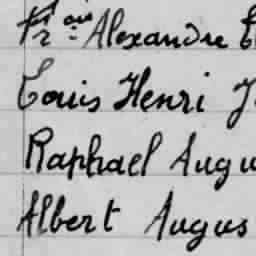 Fr ois Alexandre
Louis Henri J
Raphael Augu
Albert Augus